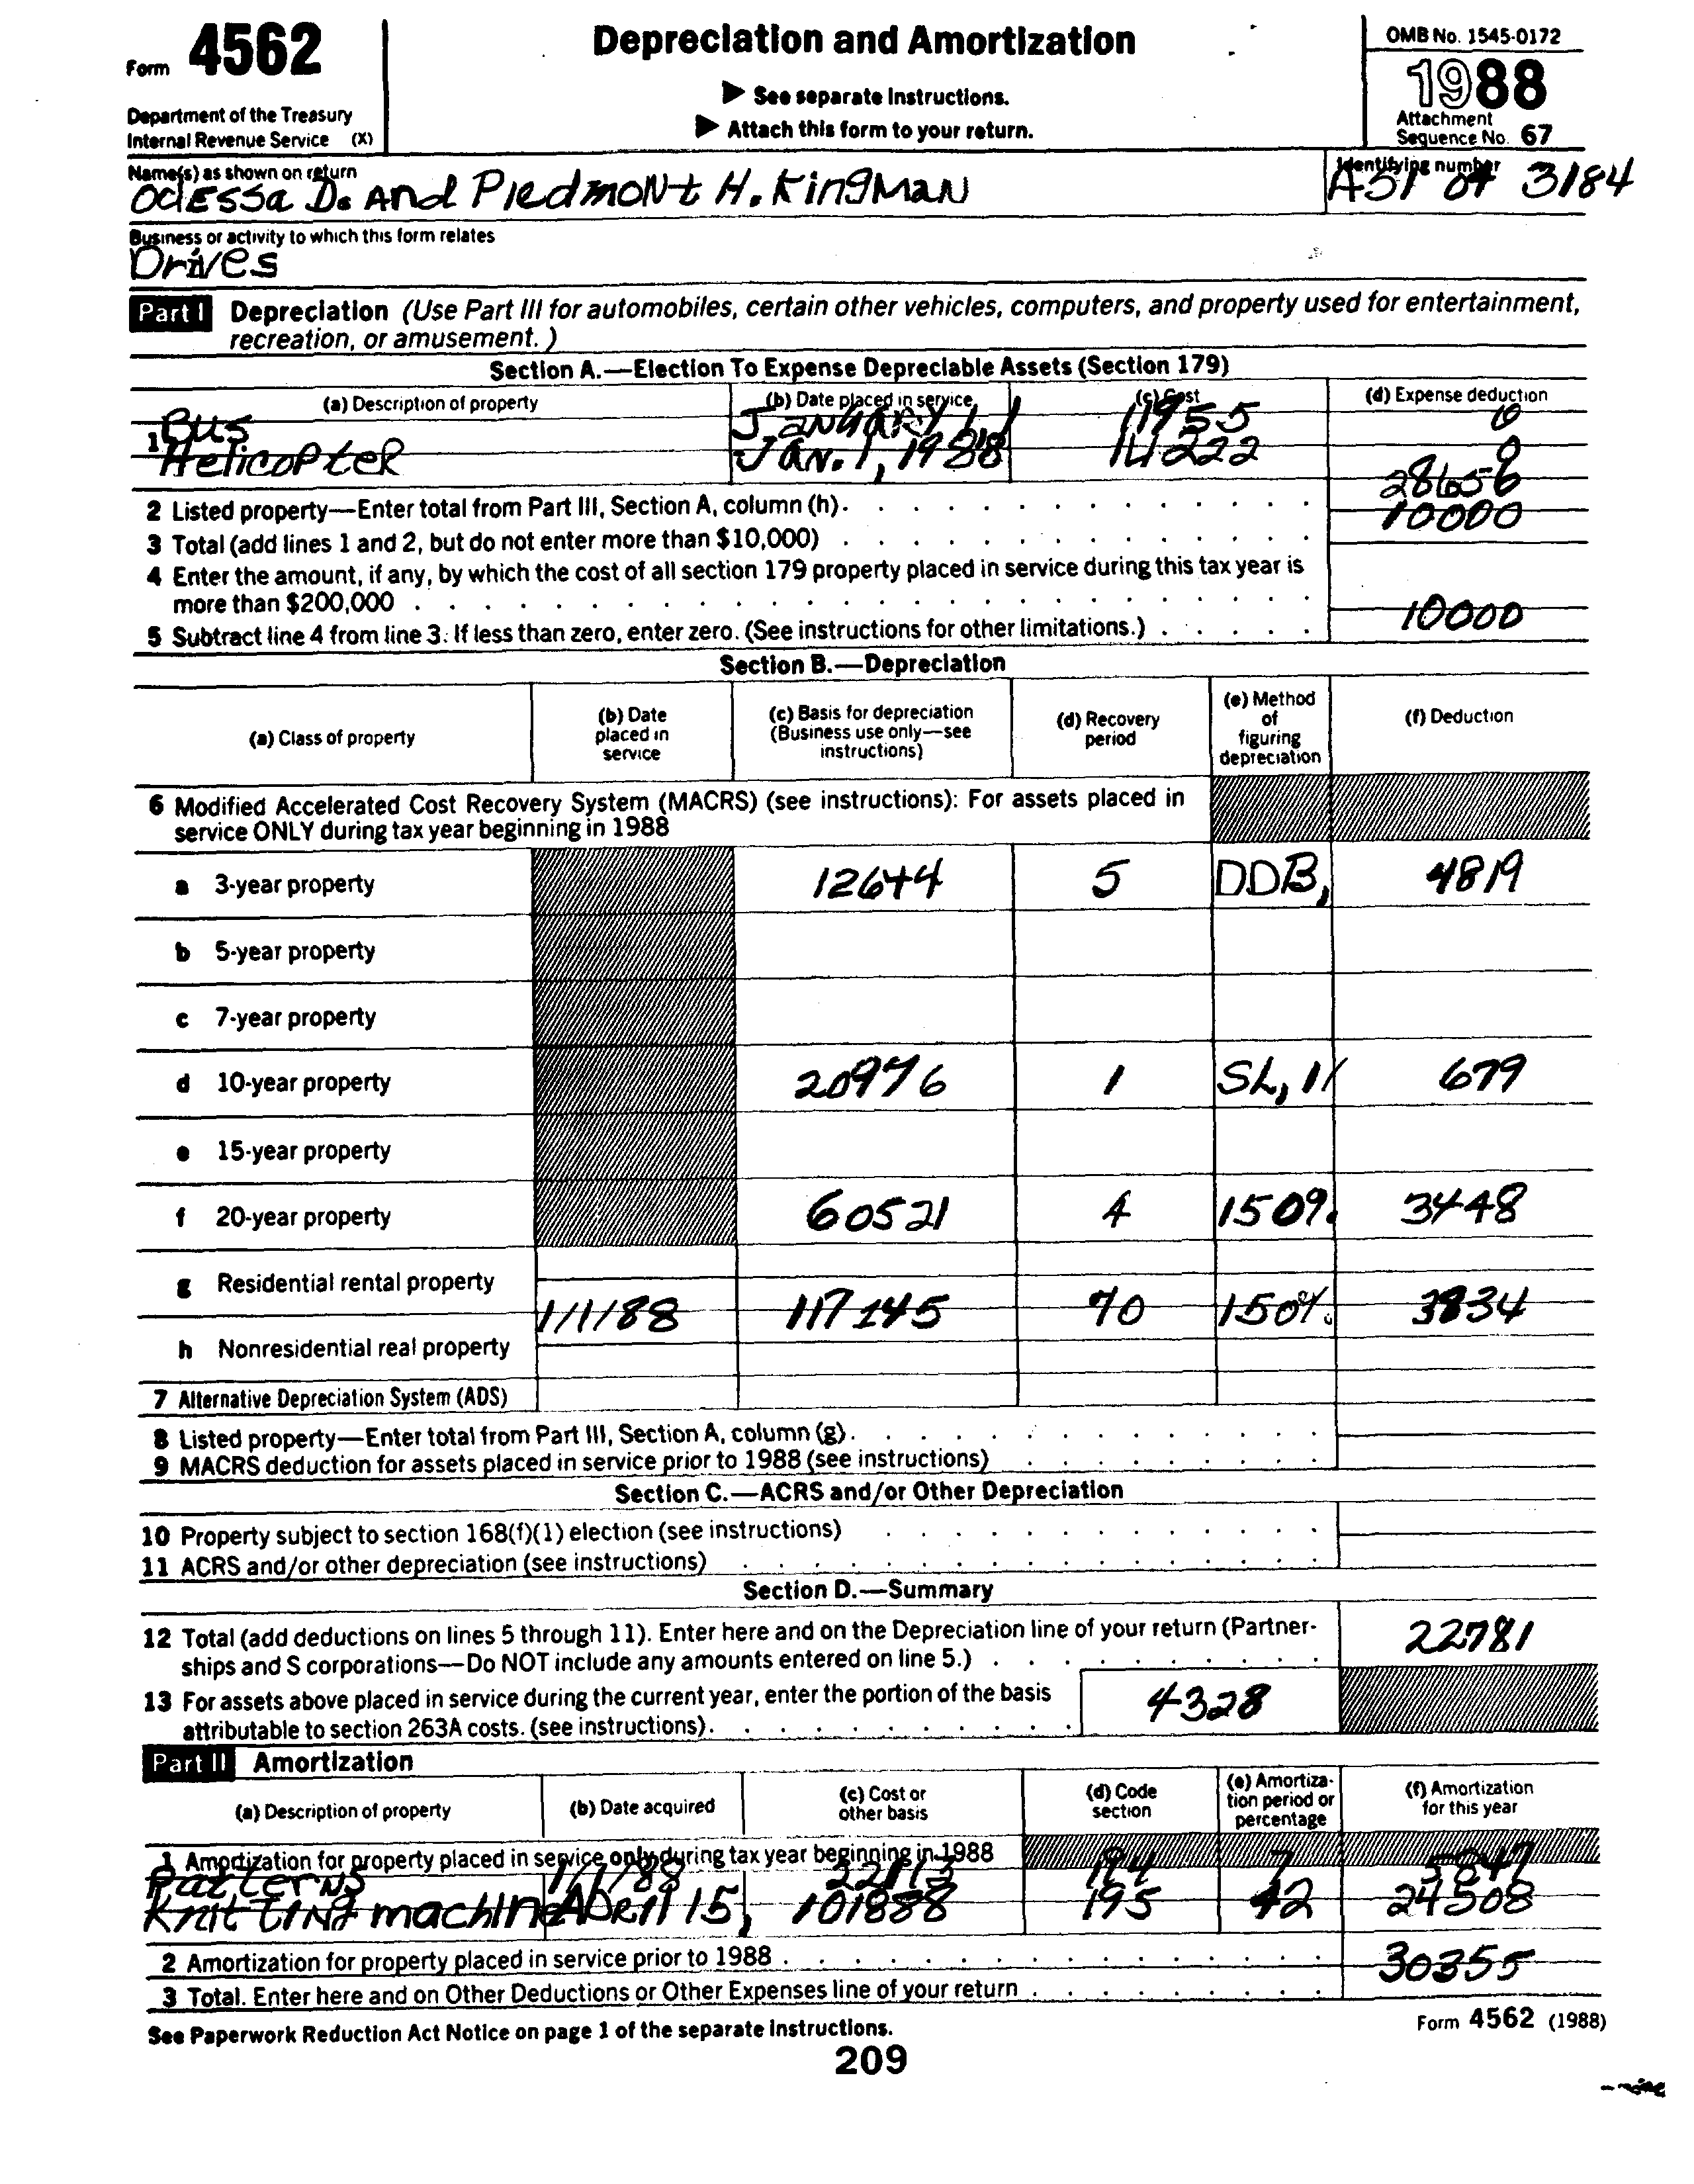 Form 4562
Department of the Treasury
Internal Revenue Service (X)
Depreciation and Amortization
▶ See separate Instructions.
▶ Attach this form to your return.
OMB No. 1545-0172
1988
Attachment
Sequence No. 67
Name(s) as shown on return
Odessa D. And Piedmont H. Kingman
Identifying number
3184
Business or activity to which this form relates
Drives
Part I Depreciation (Use Part III for automobiles, certain other vehicles, computers, and property used for entertainment,
recreation, or amusement.)
Section A.—Election To Expense Depreciable Assets (Section 179)
(a) Description of property (b) Date placed in service (c) Cost (d) Expense deduction
Bus January 1 11955 0
1 Helicopter Jan. 1, 1988 14222 0
2 Listed property—Enter total from Part III, Section A, column (h). 28656
3 Total (add lines 1 and 2, but do not enter more than $10,000) 10000
4 Enter the amount, if any, by which the cost of all section 179 property placed in service during this tax year is
more than $200,000
5 Subtract line 4 from line 3. If less than zero, enter zero. (See instructions for other limitations.) 10000
Section B.—Depreciation
(a) Class of property (b) Date placed in service (c) Basis for depreciation (Business use only—see instructions) (d) Recovery period (e) Method of figuring depreciation (f) Deduction
6 Modified Accelerated Cost Recovery System (MACRS) (see instructions): For assets placed in
service ONLY during tax year beginning in 1988
a 3-year property 12644 5 DDB, 4819
b 5-year property
c 7-year property
d 10-year property 20976 1 SL, 679
e 15-year property
f 20-year property 60521 4 150% 3448
g Residential rental property
1/1/88 117145 70 150% 3834
h Nonresidential real property
7 Alternative Depreciation System (ADS)
8 Listed property—Enter total from Part III, Section A, column (g).
9 MACRS deduction for assets placed in service prior to 1988 (see instructions)
Section C.—ACRS and/or Other Depreciation
10 Property subject to section 168(f)(1) election (see instructions)
11 ACRS and/or other depreciation (see instructions)
Section D.—Summary
12 Total (add deductions on lines 5 through 11). Enter here and on the Depreciation line of your return (Partner-
ships and S corporations—Do NOT include any amounts entered on line 5.) 22781
13 For assets above placed in service during the current year, enter the portion of the basis
attributable to section 263A costs. (see instructions). 4328
Part II Amortization
(a) Description of property (b) Date acquired (c) Cost or other basis (d) Code section (e) Amortization period or percentage (f) Amortization for this year
1 Amortization for property placed in service only during tax year beginning in 1988
Patterns 1/1/88 22113 194 7 5847
Knitting machine April 15, 101888 195 42 24508
2 Amortization for property placed in service prior to 1988
3 Total. Enter here and on Other Deductions or Other Expenses line of your return 30355
See Paperwork Reduction Act Notice on page 1 of the separate Instructions.
Form 4562 (1988)
209